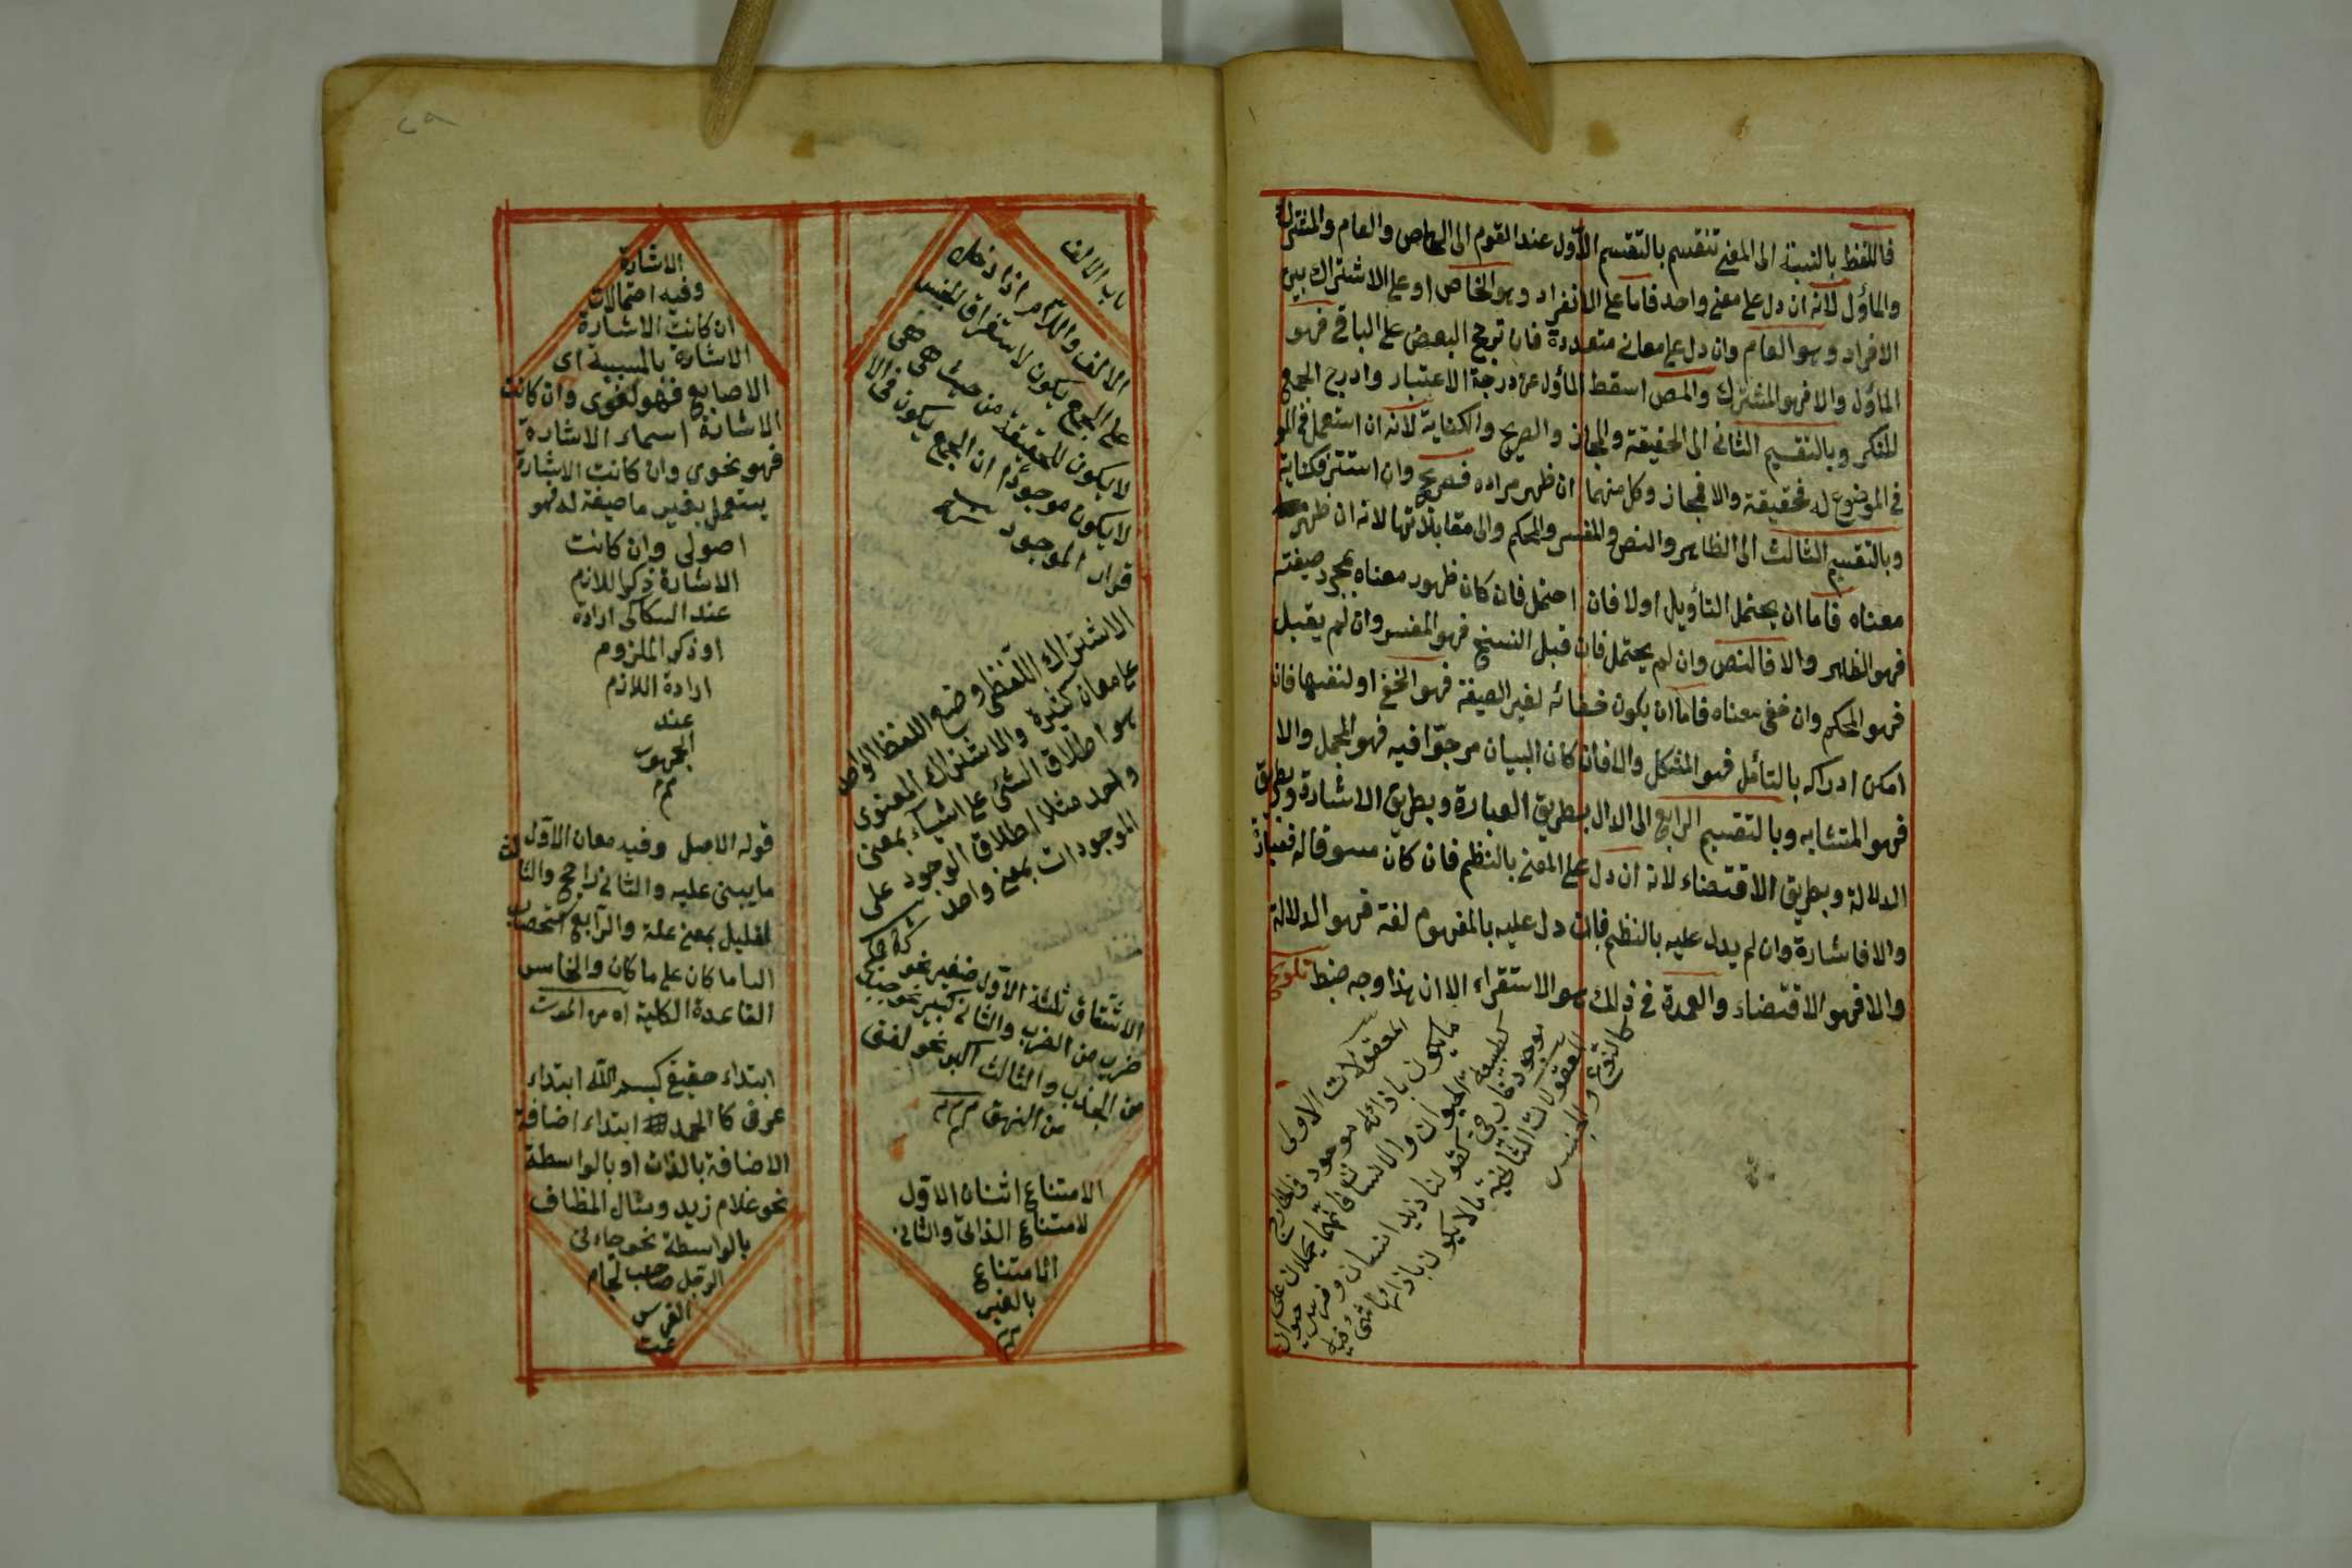 فاللفظ بالنسبة الى المعنى تنقسم بالتقسيم الاول عند القوم الى الخاص والعام والمشترك
والمأول لانه ان دل على معنى واحد فاما على الانفراد وهو الخاص او على الاشتراك بين
الافراد وهو العام وان دل على معانى متعددة فان ترجح البعض على الباقى فهو
المأول والا فهو المشترك والمص اسقط المأول عن درجة الاعتبار وادرج الجمع
المنكر وبالتقسيم الثانى الى الحقيقة والمجاز والصريح والكناية لانه ان استعمل
فى الموضوع له فحقيقة والا فمجاز وكل منهما ان ظهر مراده فصريح وان استتر فكناية
وبالتقسيم الثالث الى الظاهر والنص والمفسر والمحكم والى مقابلاتها لانه ان ظهر
معناه فاما ان يحتمل التأويل اولا فان احتمل فان كان ظهور معناه بمجرد صيغته
فهو الظاهر والا فالنص وان لم يحتمل فان قبل النسخ فهو المفسر وان لم يقبل
فهو المحكم وان خفى معناه فاما ان يكون خفائه لغير الصيغة فهو الخفى او لنفسها فان
امكن ادراكه بالتأمل فهو المشكل والا فان كان البيان مرجوا فيه فهو المجمل والا
فهو المتشابه وبالتقسيم الرابع الى الدال بطريق العبارة وبطريق الاشارة وبطريق
الدلالة وبطريق الاقتضاء لانه ان دل على المعنى بالنظم فان كان مسوقا له فعبارة
والا فاشارة وان لم يدل عليه بالنظم فان دل عليه بالمفهوم لغة فهو الدلالة
والا فهو الاقتضاء والعمدة فى ذلك هو الاستقراء الا ان هذا وجه ضبط تلويح
المعقولات الاولى
ما يكون باذائه موجود فى الخارج
كطبيعة الحيوان والانسان فانهما يحملان على
موجود خارجى كقولنا زيد انسان وفرس حيوان
المعقولات الثانية ما لا يكون باذائها شئ
كالنوع والجنس
٢٩
باب الالف
الالف واللام اذا دخل
على الجمع يكون لاستغراق الجنس
لا يكون للحقيقة من حيث هى هى
لا يكون موجودا ان الجمع يكون فى الا
فراد الموجود
الاشتراك اللفظى وضع اللفظ الواحد
على معان كثيرة والاشتراك المعنوى
هو اطلاق الشئ على اشياء بمعنى
واحد مثلا اطلاق الوجود على
الموجودات بمعنى واحد
الاشتقاق ثلثة الاول صغير نحو
ضرب من الضرب والثانى كبير نحو جبذ
من الجذب والثالث اكبر نحو لفق
من النهق
الامتناع اثنان الاول
لامتناع الذاتى والثانى
الامتناع
بالغير
الاشارة
وفيه احتمالات
ان كانت الاشارة
الاشارة بالسببية اى
الاصابع فهو لغوى وان كانت
الاشارة اسماء الاشارة
فهو نحوى وان كانت الاشارة
يستعمل بغير ما صيغة له فهو
اصولى وان كانت
الاشارة ذكر اللازم
عند السكاكى ارادة
او ذكر الملزوم
ارادة اللازم
عند
الجمهور
قوله الاصل وفيه معان الاول
ما يبنى عليه والثانى راجح والثالث
لقليل بمعنى علة والرابع استصحاب
الباء ما كان على ما كان والخامس
القاعدة الكلية اه من الموت
ابتداء حقيقى كبسم الله ابتداء
عرفى كالحمد ابتداء اضافة
الاضافة بالذات او بالواسطة
نحو غلام زيد ومثال المظاف
بالواسطة نحو جاءنى
الرجل صاحب لجام
الفرس
تمت